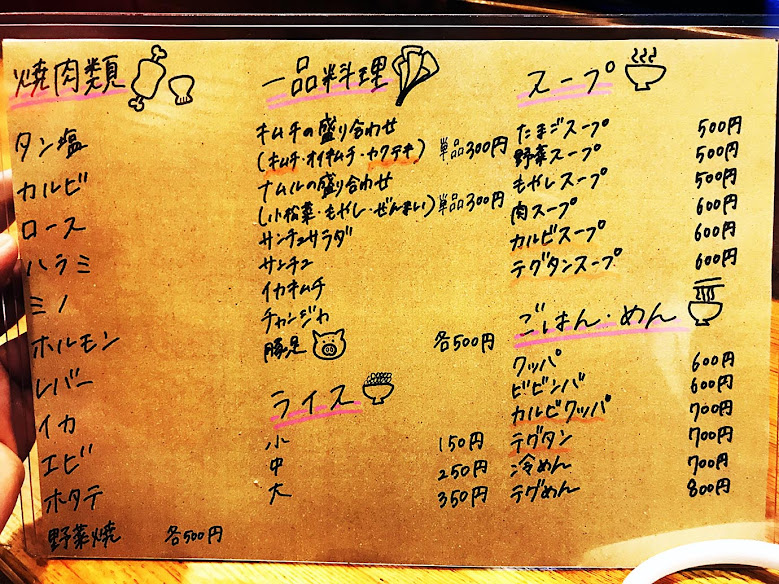 焼肉類
タン塩
カルビ
ロース
ハラミ
ミノ
ホルモン
レバー
イカ
エビ
ホタテ
野菜焼 各500円
一品料理
キムチの盛り合わせ
(キムチ・オイキムチ・カクテキ) 単品300円
ナムルの盛り合わせ
(小松菜・もやし・ぜんまい) 単品300円
サンチュサラダ
サンチュ
イカキムチ
チャンジャ
豚足 各500円
ライス
小 150円
中 250円
大 350円
スープ
たまごスープ 500円
野菜スープ 500円
もやしスープ 500円
肉スープ 600円
カルビスープ 600円
テグタンスープ 600円
ごはん・めん
クッパ 600円
ビビンバ 600円
カルビクッパ 700円
テグタン 700円
冷めん 700円
テグめん 800円